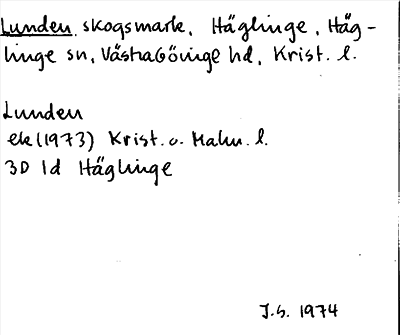 Lunden, skogsmark, Häglinge, Häg-
linge sn, Västra Göinge hd, Krist. l.
Lunden
ek (1973) Krist. o. Malm. l.
3D 1d Häglinge
J.S. 1974